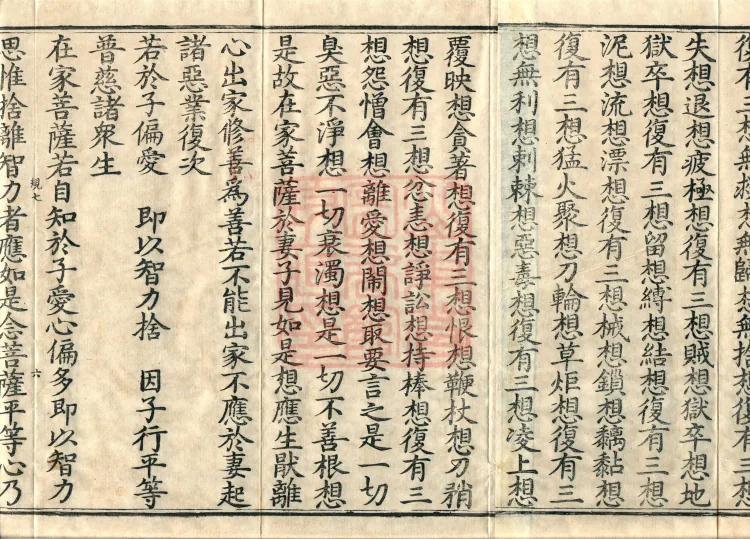 失想退想疲極想復有三想賊想獄卒想地
獄卒想復有三想留想縛想結想復有三想
泥想流想漂想復有三想械想鎖想黐黏想
復有三想猛火聚想刀輪想草炬想復有三
想無利想刺棘想惡毒想復有三想凌上想
覆映想貪著想復有三想恨想鞭杖想刀矟
想復有三想忿恚想諍訟想持棒想復有三
想怨憎會想離愛想鬧想取要言之是一切
臭惡不淨想一切衰濁想是一切不善根想
是故在家菩薩於妻子見如是想應生猒離
心出家修善為善若不能出家不應於妻起
諸惡業復次
若於子偏愛 即以智力捨 因子行平等
普慈諸眾生
在家菩薩若自知於子愛心偏多即以智力
規七 六
思惟捨離智力者應如是念菩薩平等心乃